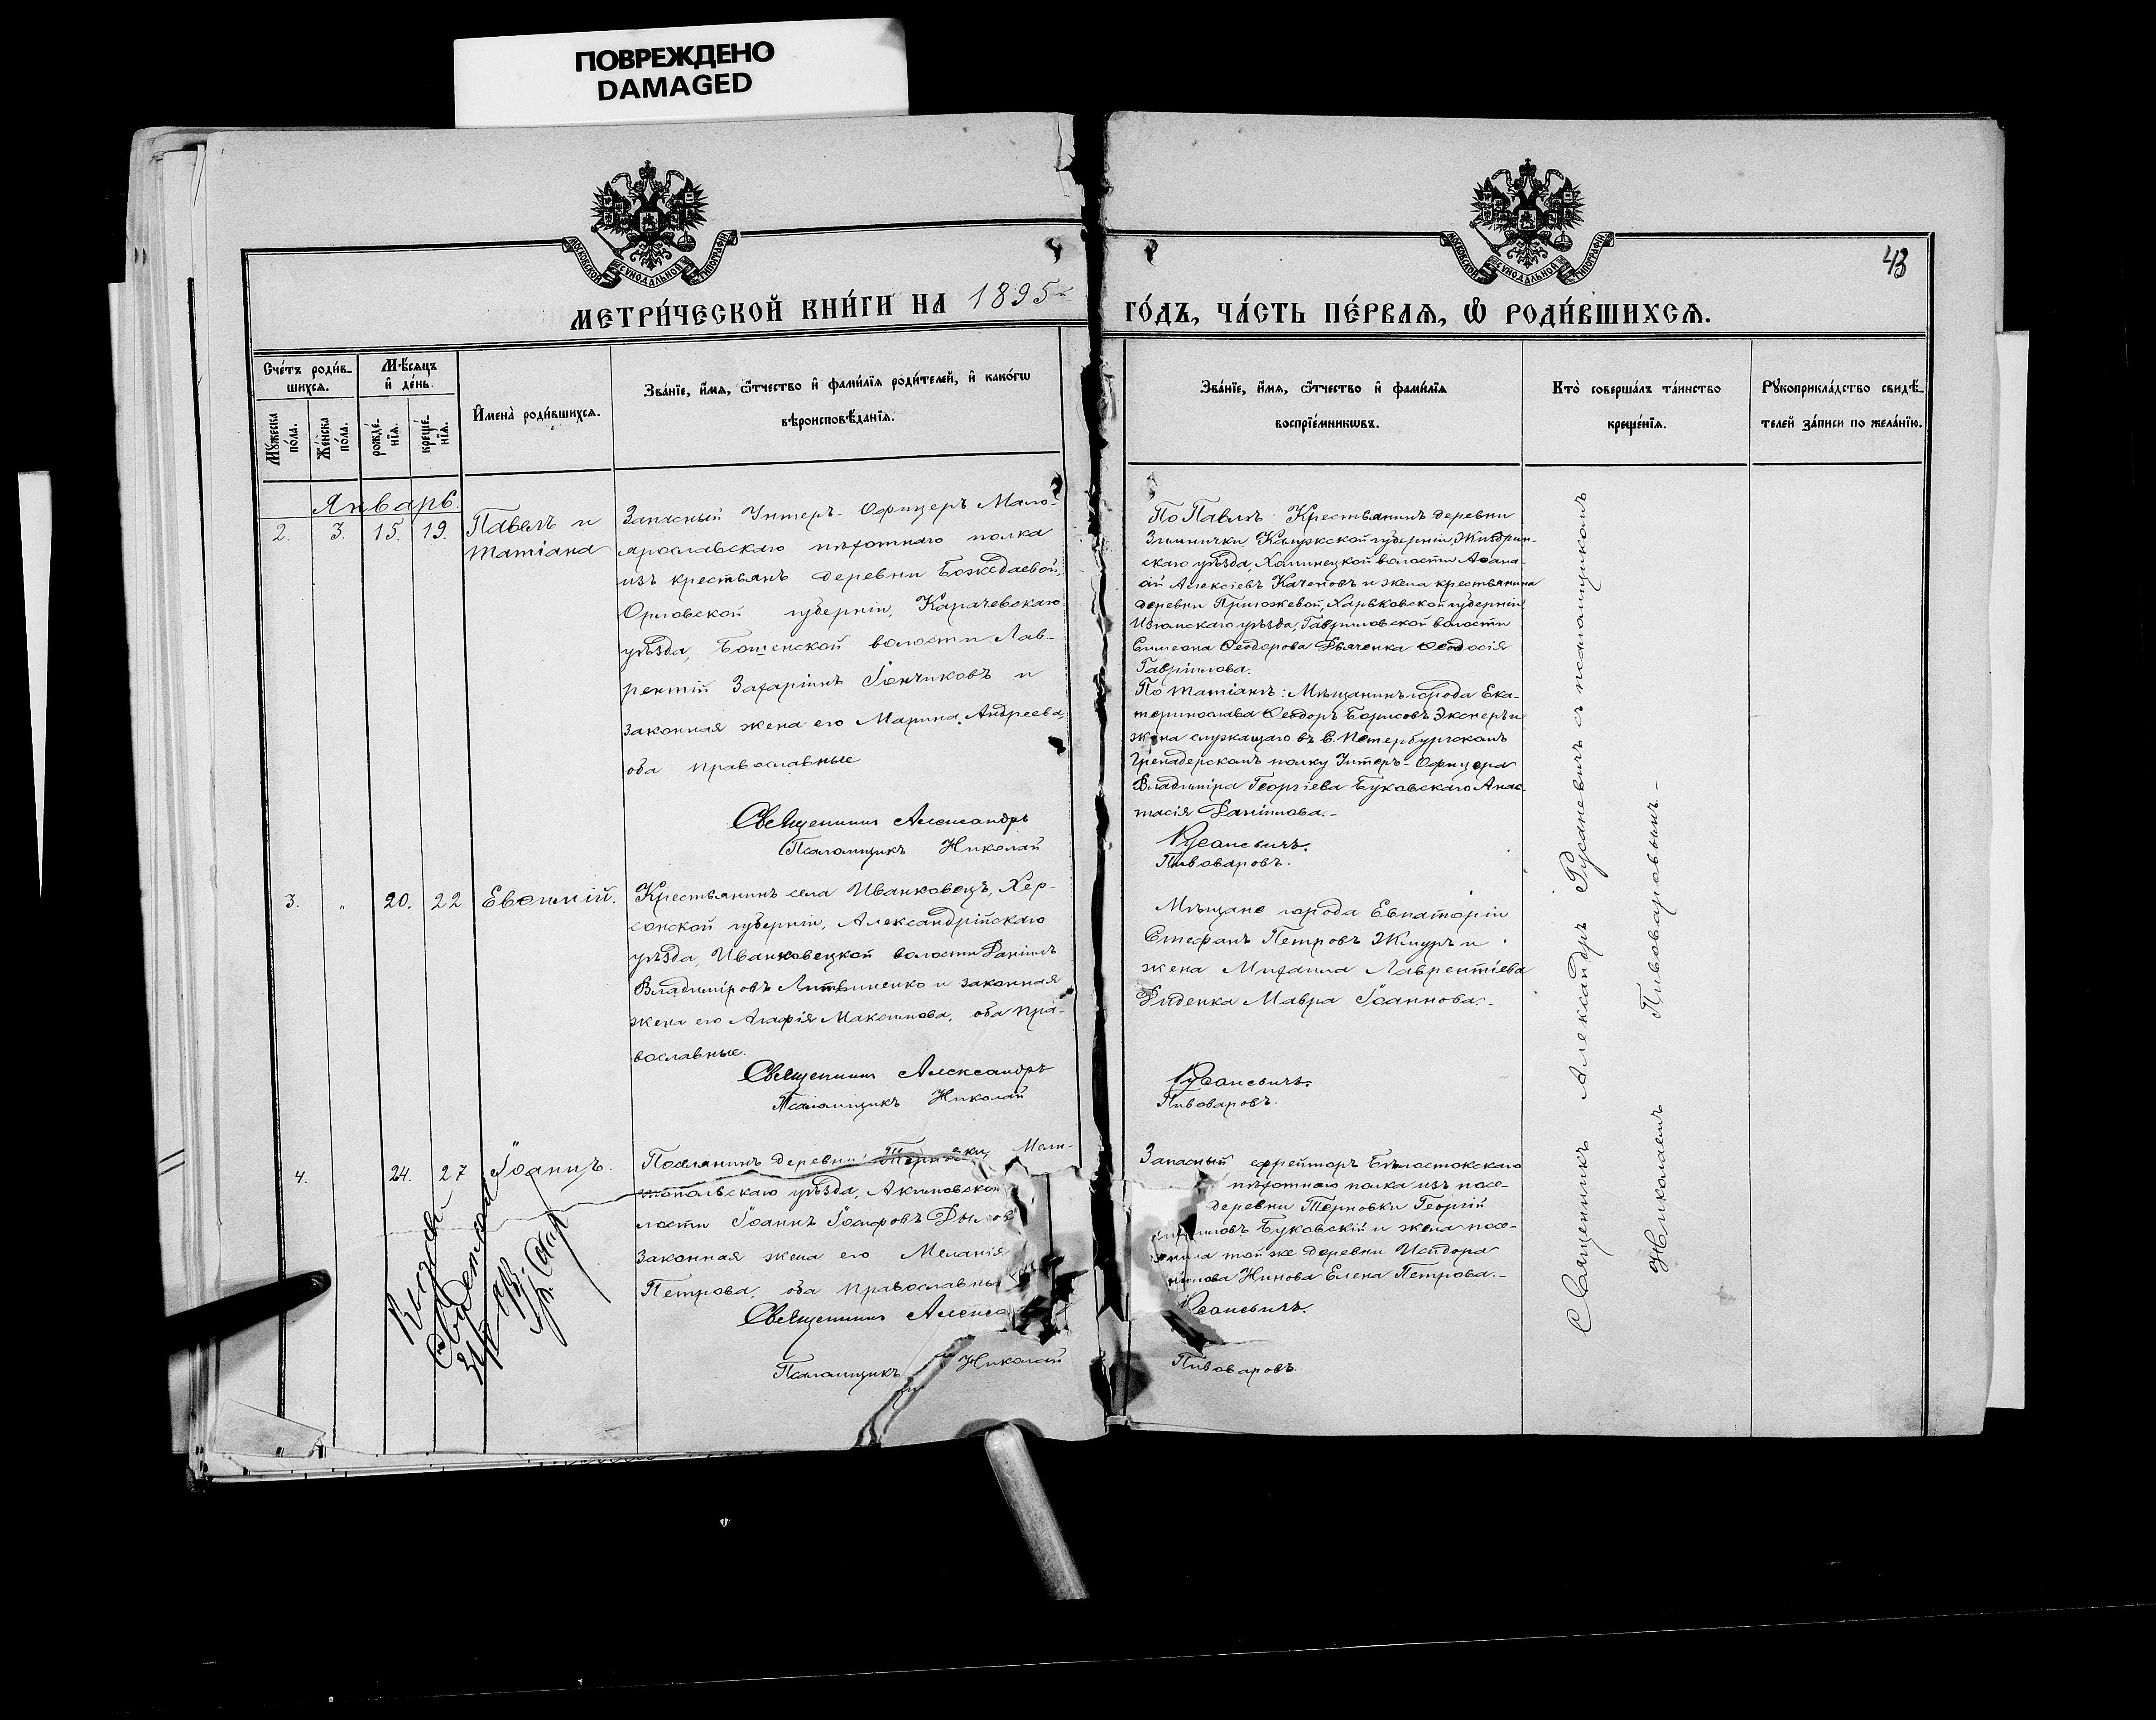 ПОВРЕЖДЕНО
DAMAGED
МОСКОВСКОЙ СУНОДАЛЬНОЙ ТИПОГРАФІИ
МОСКОВСКОЙ СУНОДАЛЬНОЙ ТИПОГРАФІИ
43
МЕТРИ́ЧЕСКОЙ КНИ́ГИ НА 1895 ГО́ДЪ, ЧА́СТЬ ПЕ́РВАѦ, Ѡ РОДИ́ВШИХСѦ.
Сче́тъ роди́в-
шихся.
Мѣ́сяцъ
и де́нь.
Мꙋ́жеска
по́ла.
Же́нска
по́ла.
рожде́-
нїя.
креще́-
нїя.
Имена̀ роди́вшихся.
Зва́нїе, и́мя, ѻ́тчество и фами́лїя роди́телей, и како́гѡ
вѣроисповѣ́данїя.
Зва́нїе, и́мя, ѻ́тчество и фами́лїя
воспрїе́мникѡвъ.
Кто̀ соверша́лъ та́инство
креще́нїя.
Рꙋкоприкла́дство свидѣ́-
телей за́писи по жела́нїю.
Январь.
2. 3. 15. 19. Павелъ и
Татіана
Запасный Унтеръ-Офицеръ Мало-
ярославскаго пѣхотнаго полка
изъ крестьянъ деревни Бождаевой,
Орловской губерніи, Карачевскаго
уѣзда, Бошенской волости Лав-
рентій Захаріинъ Гончиковъ и
законная жена его Марина Андреева,
оба православные
Священникъ Александръ
Псаломщикъ Николай
По Павлѣ: Крестьянинъ деревни
Зимнички, Калужской губерніи, Жиздрин-
скаго уѣзда, Хотинецкой волости Аѳана-
сій Алексіевъ Качановъ и жена крестьянина
деревни Пригожевой, Харьковской губерніи
Изюмскаго уѣзда, Гавриловской волости
Симеона Ѳеодорова Дьяченка Ѳеодосія
Гавріилова.
По Татіанѣ: Мѣщанинъ города Ека-
теринослава Ѳеодоръ Борисовъ и
жена служащаго въ С. Петербургскомъ
Гренадерскомъ полку Унтеръ-Офицера
Владиміра Георгіева Буковскаго Анас-
тасія Даніилова.-
Русаневичъ.
Пивоваровъ.
3. „ 20. 22 Евѳимій.
Крестьянинъ села Иванковецъ, Хер-
сонской губерніи, Александрійскаго
уѣзда, Иванковецкой волости Даніилъ
Владиміровъ Литвиненко и законная
жена его Агафія Максимова, оба пра-
вославные.
Священникъ Александръ
Псаломщикъ Николай
Мѣщане города Евпаторіи
Стефанъ Петровъ Жмуръ и
жена Михаила Лаврентіева
Диденка Мавра Іоаннова.-
Русаневичъ.
Пивоваровъ.
4. 24. 27 Іоаннъ.
Поселянинъ деревни Терновки, Мели-
топольскаго уѣзда, Акимовской
лости Іоаннъ Іосифовъ
законная жена его Меланія
Петрова, оба православны
Священникъ Алекса
Псаломщикъ Николай
Запасный ефрейторъ Бѣлостокскаго
пѣхотнаго полка изъ посе-
деревни Терновки Георгій
Буковскій и жена посе-
той же деревни Исидора
Нинова Елена Петрова.-
Русаневичъ.
Пивоваровъ.
Священникъ Александръ Русаневичъ съ псаломщикомъ
Николаемъ Пивоваровымъ.-